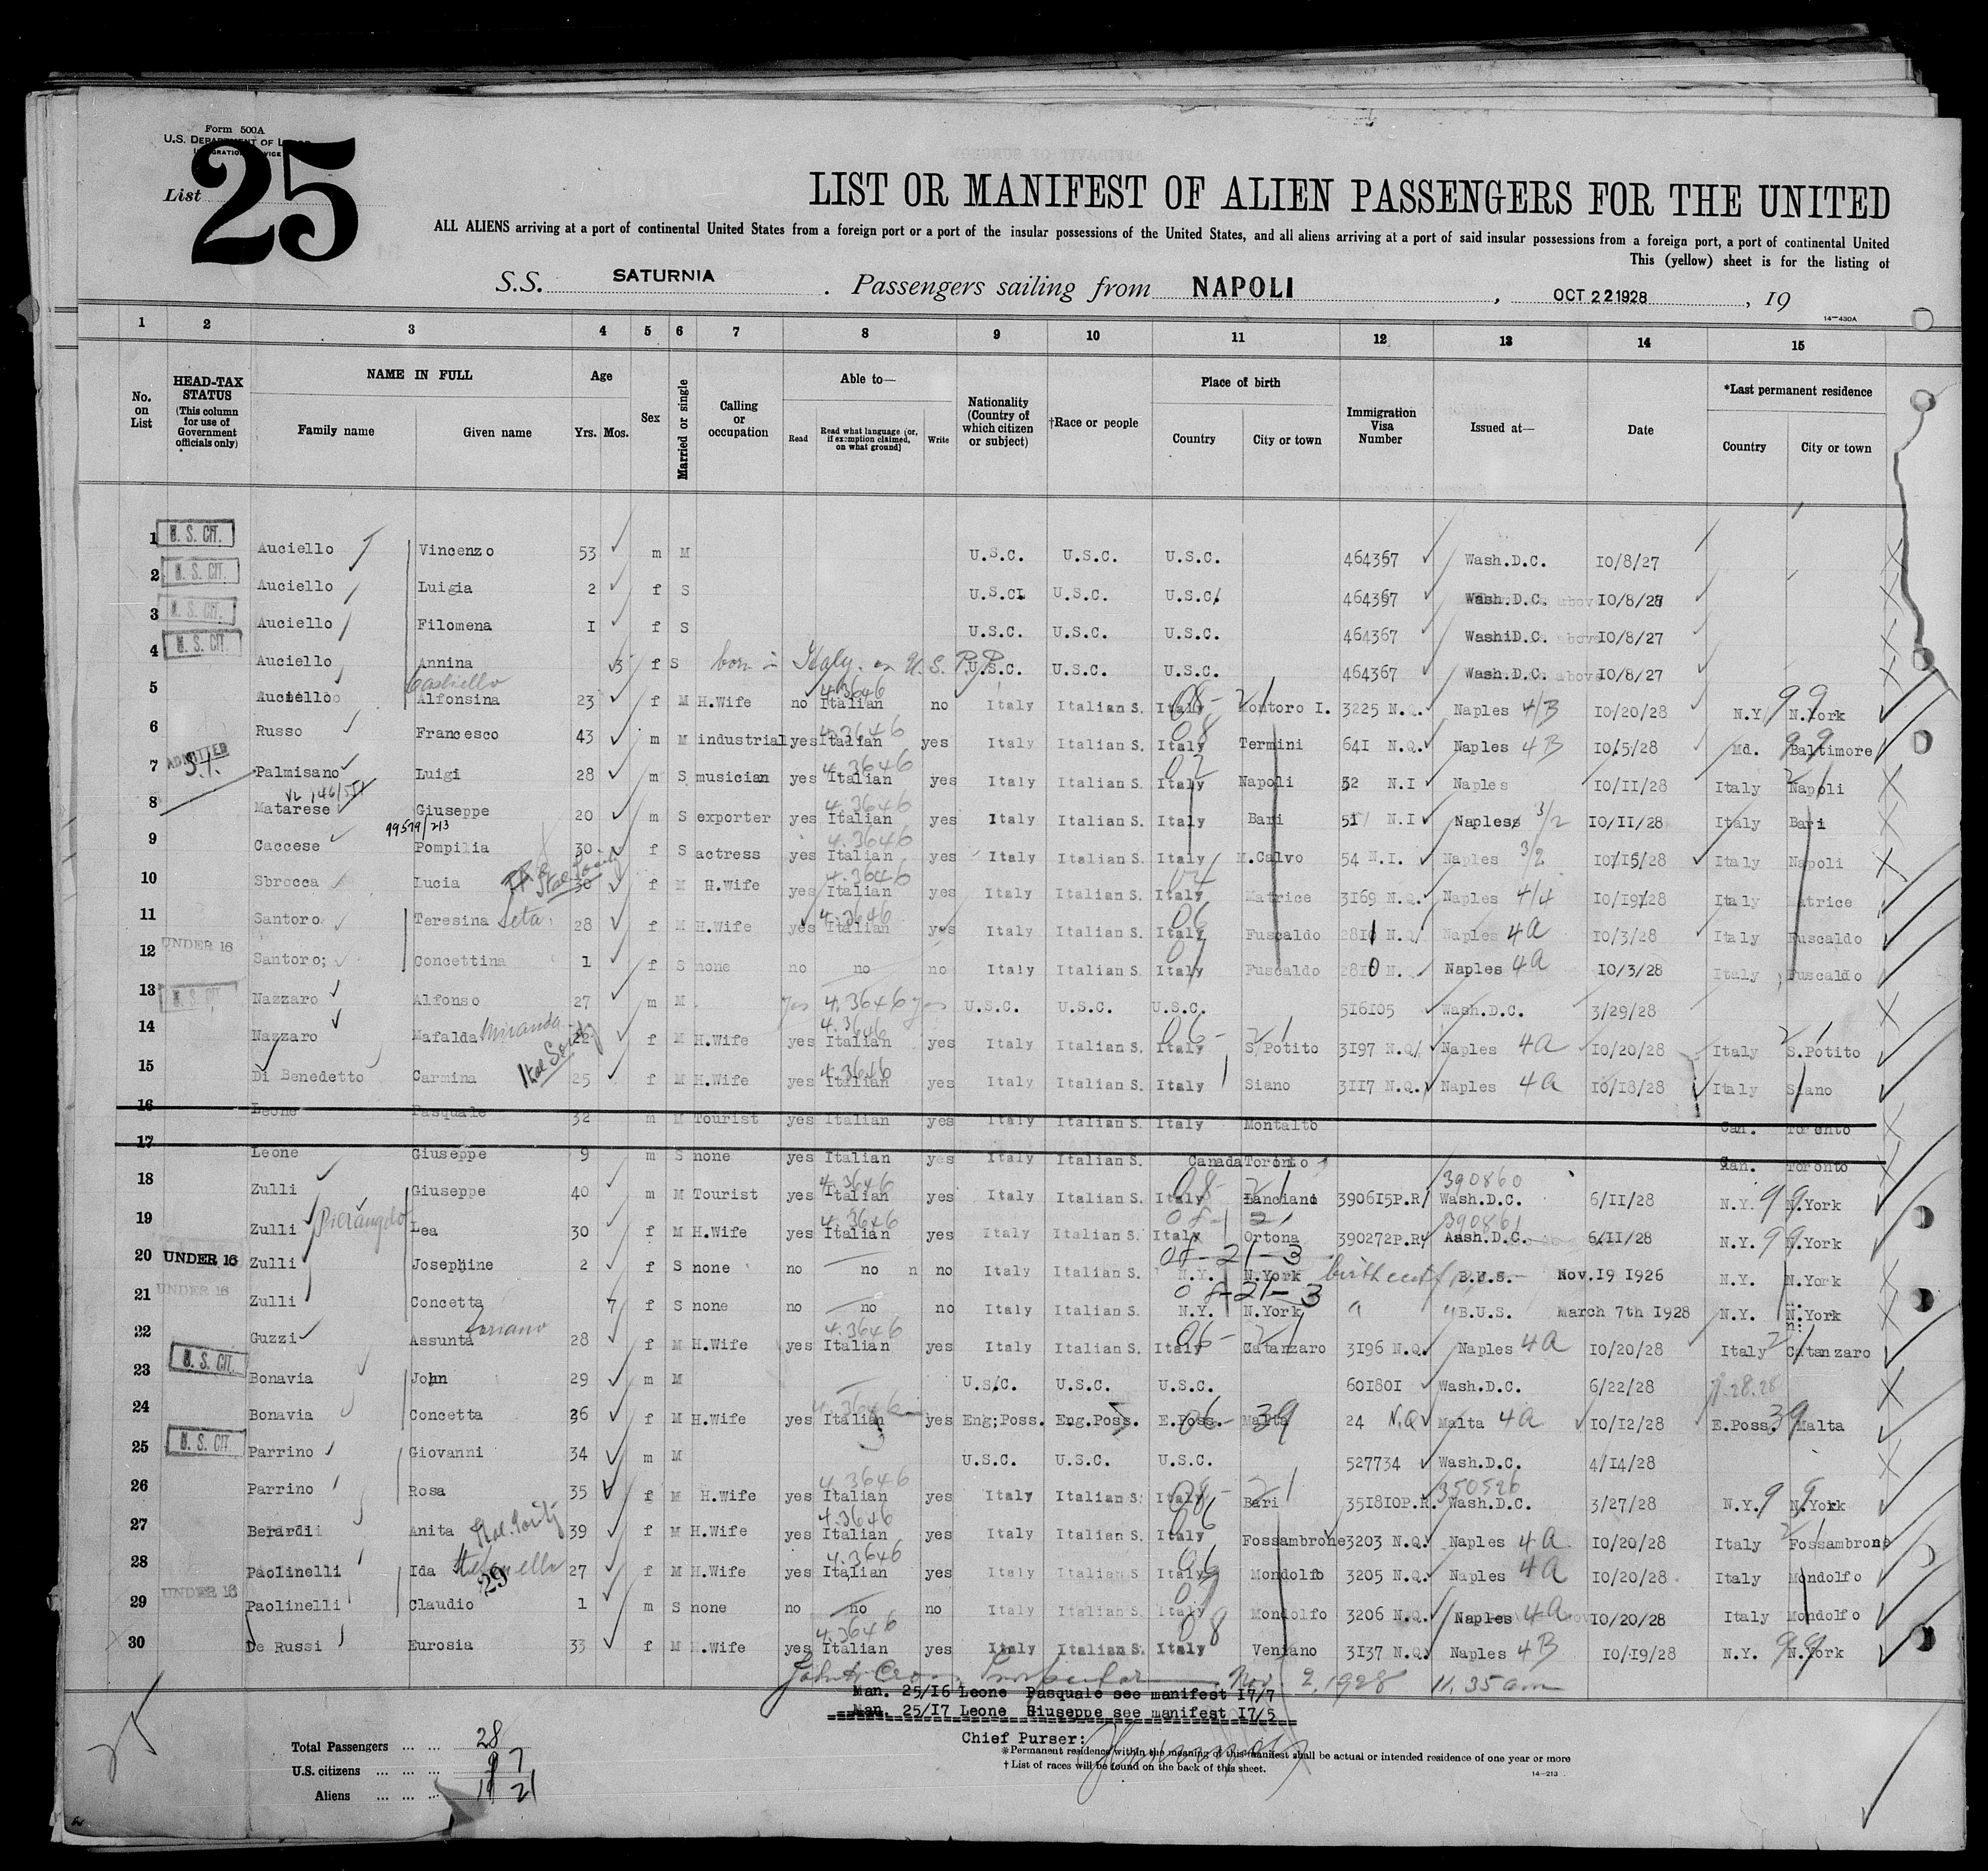 Form 500A
U.S. DEPARTMENT OF LABOR
IMMIGRATION SERVICE
List 25
LIST OR MANIFEST OF ALIEN PASSENGERS FOR THE UNITED
ALL ALIENS arriving at a port of continental United States from a foreign port or a port of the insular possessions of the United States, and all aliens arriving at a port of said insular possessions from a foreign port, a port of continental United
This (yellow) sheet is for the listing of
S.S. SATURNIA . Passengers sailing from NAPOLI , OCT 22 1928 , 19
14—430A
1 2 3 4 5 6 7 8 9 10 11 12 13 14 15
No. on List HEAD-TAX STATUS (This column for use of Government officials only) NAME IN FULL Family name Given name Age Yrs. Mos. Sex Married or single Calling or occupation Able to— Read Read what language (or, if exemption claimed, on what ground) Write Nationality (Country of which citizen or subject) †Race or people Place of birth Country City or town Immigration Visa Number Issued at— Date *Last permanent residence Country City or town
1 U. S. CIT. Auciello Vincenzo 53 m M U.S.C. U.S.C. U.S.C. 464367 Wash.D.C. 10/8/27
2 U. S. CIT. Auciello Luigia 2 f S U.S.C. U.S.C. U.S.C. 464367 Wash.D.C. 10/8/27
3 U. S. CIT. Auciello Filomena 1 f S U.S.C. U.S.C. U.S.C. 464367 Wash.D.C. 10/8/27
4 U. S. CIT. Auciello Annina 3 f S born in Italy. on U.S. P.P. U.S.C. U.S.C. U.S.C. 464367 Wash.D.C. 10/8/27
5 Auciello Alfonsina 23 f M H.Wife no 4.3646 Italian no Italy Italian S. Italy 08- 21 Montoro I. 3225 N.Q. Naples 4/B 10/20/28 N.Y. 99 N.York
6 Russo Francesco 43 m M industrial yes 4.3646 Italian yes Italy Italian S. Italy 08 Termini 641 N.Q. Naples 4B 10/5/28 Md. 99 Baltimore
7 ADMITTED S.I. Palmisano Luigi 28 m S musician yes 4.3646 Italian yes Italy Italian S. Italy Napoli 52 N.I Naples 10/11/28 Italy Napoli
8 Matarese Giuseppe 20 m S exporter yes 4.3646 Italian yes Italy Italian S. Italy Bari 51 N.I Naples 3/2 10/11/28 Italy Bari
9 Caccese 99579/213 Pompilia 30 f S actress yes 4.3646 Italian yes Italy Italian S. Italy M.Calvo 54 N.I. Naples 3/2 10/15/28 Italy Napoli
10 Sbrocca Lucia 30 f M H.Wife yes 4.3646 Italian yes Italy Italian S. Italy 04 Matrice 3169 N.Q. Naples 4/4 10/19/28 Italy Matrice
11 Santoro Teresina Seta 28 f M H.Wife yes 4.3646 Italian yes Italy Italian S. Italy 06 Fuscaldo 2811 N.Q. Naples 4A 10/3/28 Italy Fuscaldo
12 UNDER 16 Santoro; Concettina 1 f S none no no no Italy Italian S. Italy Fuscaldo 2810 N. Naples 4A 10/3/28 Italy Fuscaldo
13 U. S. CIT. Nazzaro Alfonso 27 m M yes 4.3646 yes U.S.C. U.S.C. U.S.C. 516105 Wash.D.C. 3/29/28
14 Nazzaro Mafalda Miranda 22 f M H.Wife yes 4.3646 Italian yes Italy Italian S. Italy 06- 21 S.Potito 3197 N.Q. Naples 4A 10/20/28 Italy 21 S.Potito
15 Di Benedetto Carmina 25 f M H.Wife yes 4.3646 Italian yes Italy Italian S. Italy Siano 3117 N.Q. Naples 4A 10/18/28 Italy Siano
16 Leone Pasquale 32 m M Tourist yes Italian yes Italy Italian S. Italy Montalto Can. Toronto
17 Leone Giuseppe 9 m S none yes Italian yes Italy Italian S. Canada Toronto Can. Toronto
18 Zulli Giuseppe 40 m M Tourist yes 4.3646 Italian yes Italy Italian S. Italy 08- 21 Lanciano 390615P.R. 390860 Wash.D.C. 6/11/28 N.Y. 99 N.York
19 Zulli Pierangelo Lea 30 f M H.Wife yes 4.3646 Italian yes Italy Italian S. Italy 08- 21 Ortona 390272P.R. 390861 Wash.D.C. 6/11/28 N.Y. 99 N.York
20 UNDER 16 Zulli Josephine 2 f S none no no no Italy Italian S. 08-21-3 N.Y. N.York birth cert B.U.S. Nov.19 1926 N.Y. N.York
21 UNDER 16 Zulli Concetta 7 f S none no no no Italy Italian S. 08-21-3 N.Y. N.York " " B.U.S. March 7th 1928 N.Y. N.York
22 Guzzi Assunta 28 f M H.Wife yes 4.3646 Italian yes Italy Italian S. Italy 06- 21 Catanzaro 3196 N.Q. Naples 4A 10/20/28 Italy 21 Catanzaro
23 U. S. CIT. Bonavia John 29 m M U.S.C. U.S.C. U.S.C. 601801 Wash.D.C. 6/22/28
24 Bonavia Concetta 36 f M H.Wife yes 4.3646 Italian yes Eng;Poss. Eng.Poss. E.Poss. 06- 39 Malta 24 N.Q. Malta 4A 10/12/28 E.Poss. 39 Malta
25 U. S. CIT. Parrino Giovanni 34 m M U.S.C. U.S.C. U.S.C. 527734 Wash.D.C. 4/14/28
26 Parrino Rosa 35 f M H.Wife yes 4.3646 Italian yes Italy Italian S. Italy 08- 21 Bari 351810P.R. 350526 Wash.D.C. 3/27/28 N.Y. 99 N.York
27 Berardi Anita 39 f M H.Wife yes 4.3646 Italian yes Italy Italian S. Italy 06 Fossambrone 3203 N.Q. Naples 4A 10/20/28 Italy 21 Fossambrone
28 Paolinelli Ida 27 f M H.Wife yes 4.3646 Italian yes Italy Italian S. Italy 06 Mondolfo 3205 N.Q. Naples 4A 10/20/28 Italy Mondolfo
29 UNDER 16 Paolinelli 29 Claudio 1 m S none no no no Italy Italian S. Italy Mondolfo 3206 N.Q. Naples 4A 10/20/28 Italy Mondolfo
30 De Russi Eurosia 33 f M H.Wife yes 4.3646 Italian yes Italy Italian S. Italy 08 Veniano 3137 N.Q. Naples 4B 10/19/28 N.Y. 99 N.York
Inspector Nov. 2, 1928 11.35 am
Man. 25/16 Leone Pasquale see manifest 17/7
Man. 25/17 Leone Giuseppe see manifest 17/5
Chief Purser:
Total Passengers ... ... 28
U.S. citizens ... ... ... 7
Aliens ... ... ... 21
* Permanent residence within the meaning of this manifest shall be actual or intended residence of one year or more
† List of races will be found on the back of this sheet.
14—213